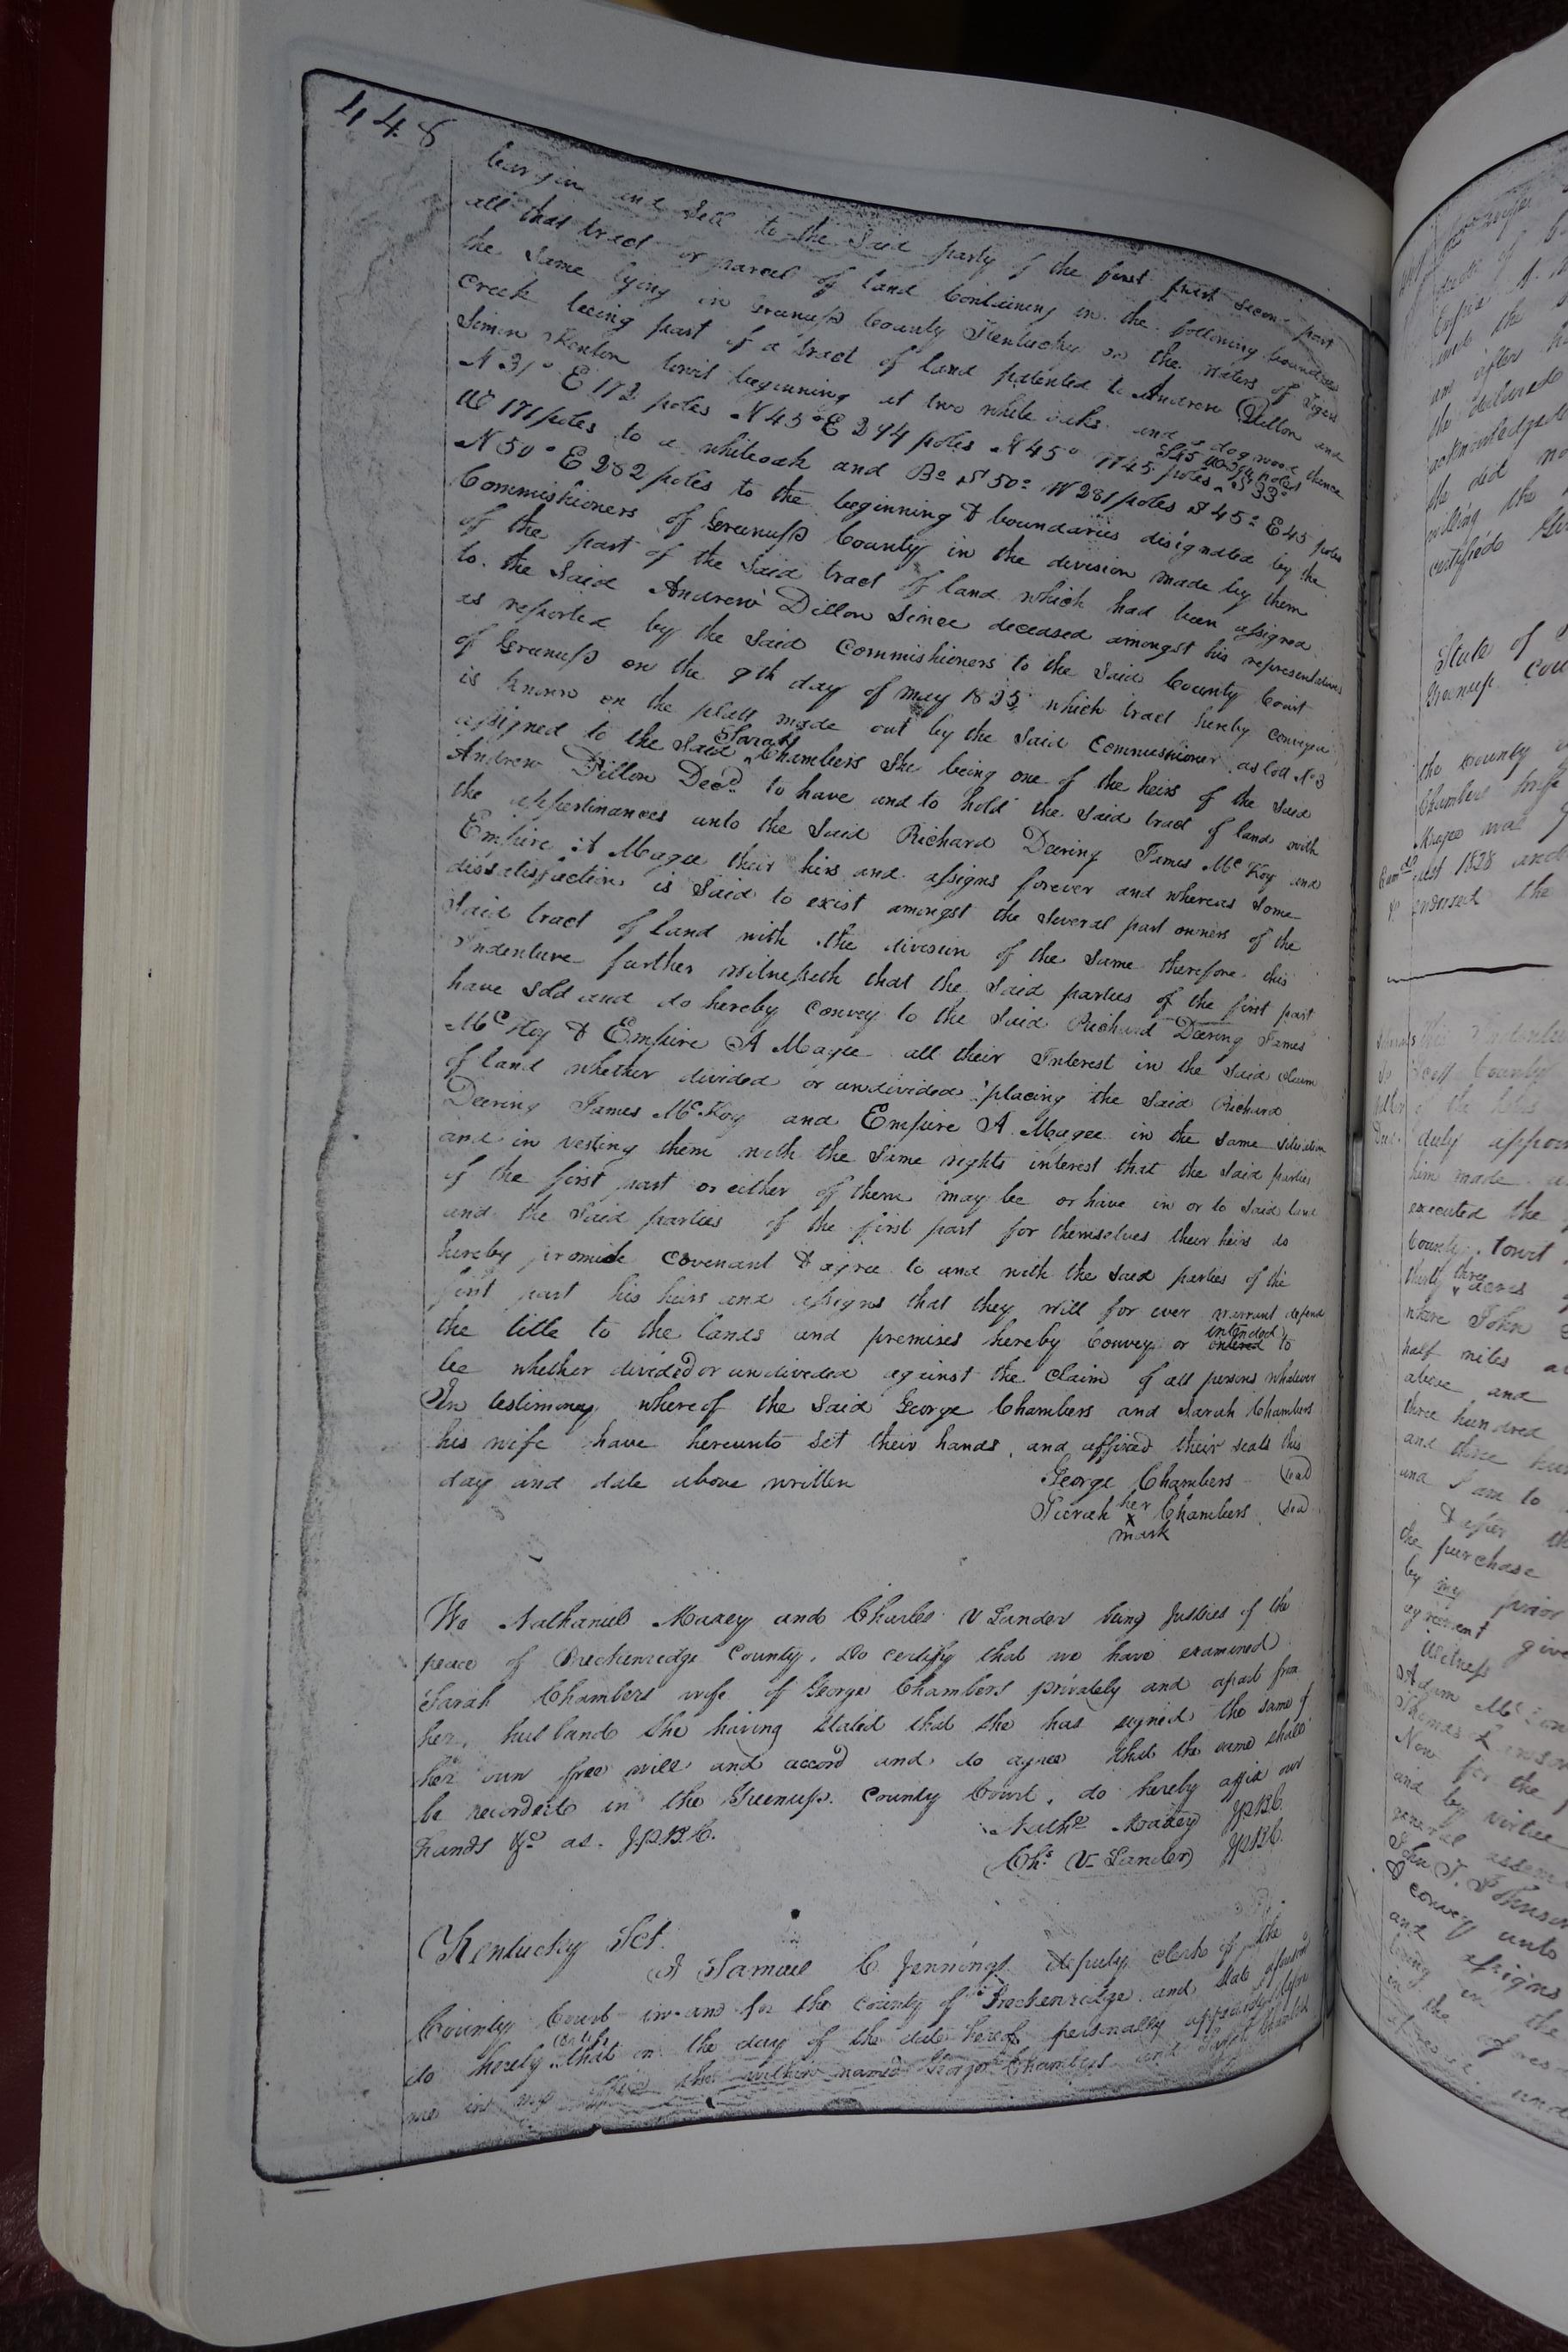 448
bargain and Sell to the Said party of the first part second part
all that tract or parcel of land Containing in the following boundaries
the Same lying in Greenup County Kentucky on the waters of Tigers
Creek being part of a tract of land patented to Andrew Dillon and
Simon Kenton towit beginning at two white oaks and a dogwood thence
N 31° E 172 poles N 45° E 244 poles N 45° W 45 poles S 45 W 94 poles S 33°
W 171 poles to a whiteoak and Bo S 50° W 281 poles S 45° E 45 poles
N 50° E 282 poles to the beginning & boundaries disignated by the
Commishioners of Greenup County in the division made by them
of the part of the Said tract of land which had been assigned
to the Said Andrew Dillon Since deceased amongst his representatives
as reported by the Said Commishioners to the Said County Court
of Greenup on the 9th day of may 1825 which tract hereby conveyed
is known on the platt made out by the Said Commissioner as lott No 3
assigned to the Said Sarah Chambers She being one of the heirs of the Said
Andrew Dillon Decd. to have and to hold the Said tract of land with
the appertinances unto the Said Richard Deering James Mc Koy and
Empire A Magee their hirs and assigns forever and whereas Some
dissatisfaction is Said to exist amongst the Several part owners of the
Said tract of land with the division of the Same therefore this
Indenture further witnesseth that the Said parties of the first part
have sold and do hereby Convey to the Said Richard Deering James
Mc Koy & Empire A Magee all their Interest in the Said claim
of land whether divided or undivided placing the Said Richard
Deering James Mc Koy and Empire A Magee in the Same situation
and in vesting them with the Same rights interest that the Said parties
of the first part or either of them may be or have in or to Said land
and the Said parties of the first part for themselves their heirs do
hereby promise Covenant & agree to and with the Said parties of the
first part his heirs and assigns that they will for ever warrant defend
the title to the lands and premises hereby Convey or entered intended to
be whether divided or undivided against the Claim of all persons whatever
In testimony whereof the Said George Chambers and Sarah Chambers
his wife have hereunto Set their hands and affixed their seals this
day and date above written George Chambers (seal)
Sarah her x mark Chambers (seal)
We Nathaniel Maxey and Charles V Lander being Justies of the
peace of Breckenredge County, do certify that we have examined
Sarah Chambers wife of George Chambers privately and apart from
her husband She having Stated that She has signed the same of
her own free will and accord and do agree that the same shall
be recorded in the Greenup County Court, do hereby affix our
hands &c as J.P.B.C. Nathl Maxey JPBC
Chs V Lander JPBC
Kentucky Sct.
I Samuel C. Jennings deputy clerk of the
County Court in and for the County of Breckenridge and State aforesaid
do hereby certify that on the day of the date hereof personally appeared before
me in my office the within named George Chambers and Sarah Chambers
State of
Greenup Cou
the County
Chambers
Magee was
1828 and
endorsed the
duly appoin
him made
executed the
County, towit
thirty three acres
where John
half miles
above and
three hundred
and three hun
and I am to
& after th
the purchase
by my prior
agreement give
Witness
Adam Mc
Thomas
Now for the
and by virtue
general assem
John T. Johnson
& convey unto
and assigns
in the afores